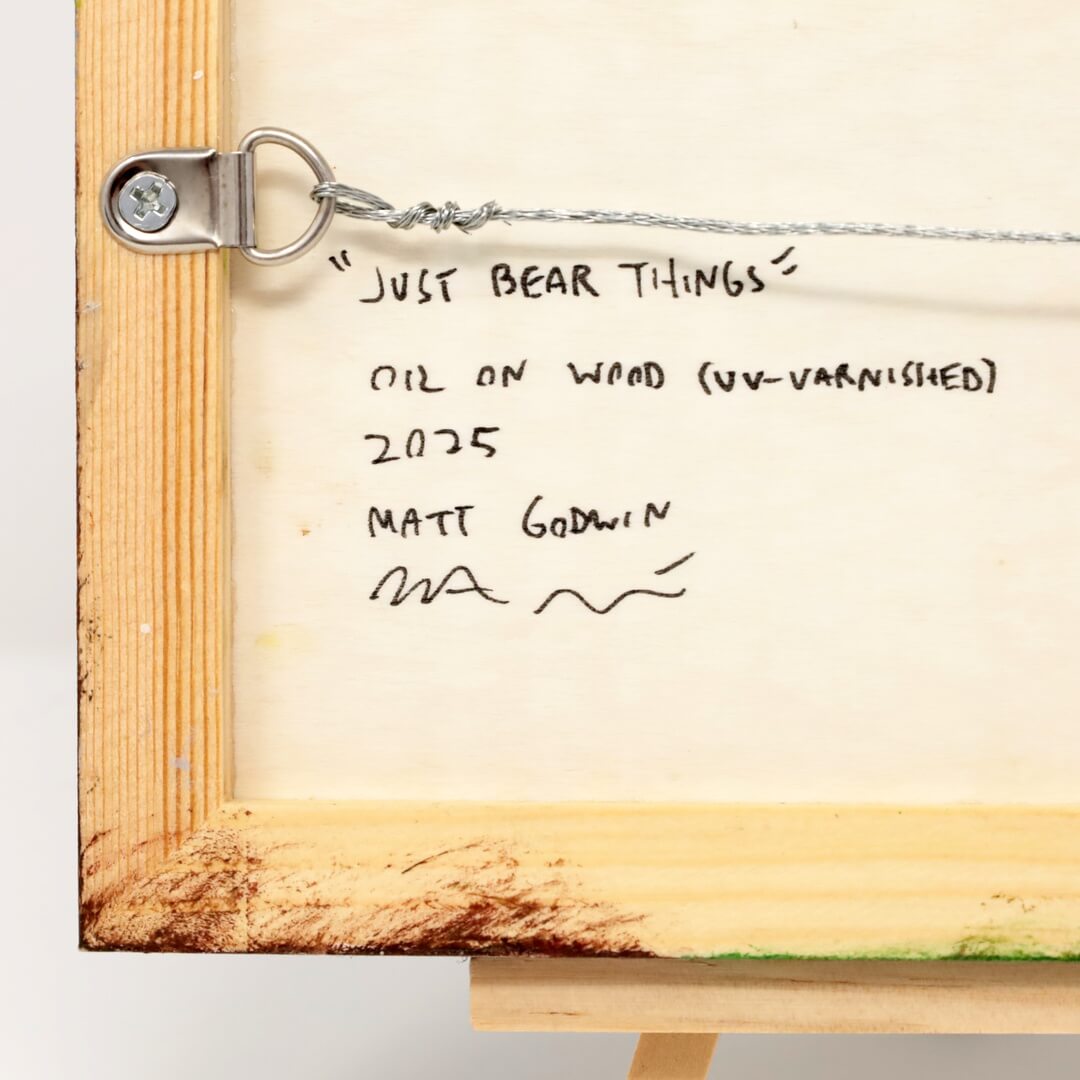 "JUST BEAR THINGS"
OIL ON WOOD (UV-VARNISHED)
2025
MATT GODWIN